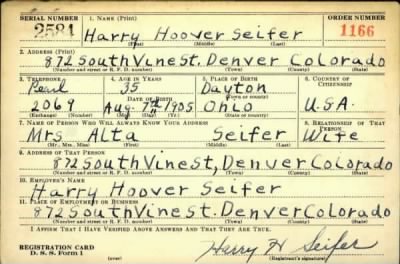 SERIAL NUMBER 1. NAME (Print) ORDER NUMBER
2584 Harry Hoover Seifer 1166
(First) (Middle) (Last)
2. ADDRESS (Print)
872 South Vine St. Denver Colorado
(Number and street or R. F. D. number) (Town) (County) (State)
3. TELEPHONE 4. AGE IN YEARS 5. PLACE OF BIRTH 6. COUNTRY OF CITIZENSHIP
Pearl 35 Dayton
DATE OF BIRTH (Town or county)
2069 Aug. 7th 1905 Ohio U.S.A.
(Exchange) (Number) (Mo.) (Day) (Yr.) (State or country)
7. NAME OF PERSON WHO WILL ALWAYS KNOW YOUR ADDRESS 8. RELATIONSHIP OF THAT PERSON
Mrs Alta Seifer Wife
(Mr., Mrs., Miss) (First) (Middle) (Last)
9. ADDRESS OF THAT PERSON
872 South Vine St, Denver Colorado
(Number and street or R. F. D. number) (Town) (County) (State)
10. EMPLOYER'S NAME
Harry Hoover Seifer
11. PLACE OF EMPLOYMENT OR BUSINESS
872 South Vine St. Denver Colorado
(Number and street or R. F. D. number) (Town) (County) (State)
I AFFIRM THAT I HAVE VERIFIED ABOVE ANSWERS AND THAT THEY ARE TRUE.
REGISTRATION CARD
D. S. S. Form 1 Harry H Seifer
(Registrant's signature)